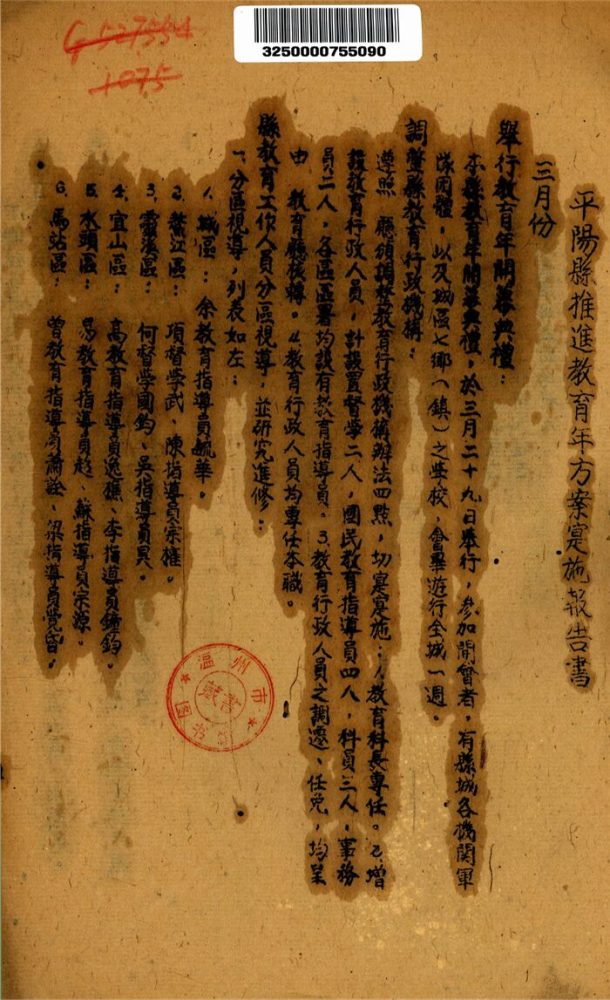 3250000755090
G 527594
1075
平陽縣推進教育年方案寔施報告書
三月份
舉行教育年開幕典禮：
本縣教育年開幕典禮，於三月二十九日舉行，參加開會者，有縣城各機関軍
隊团體，以及城區七鄉（鎮）之學校，會畢遊行全城一週。
調整縣教育行政機構：
遵照 廳頒調整教育行政機構辦法四點，切寔寔施：1.教育科長專任。2.增
設教育行政人員，計設置督學二人，國民教育指導員四人，科員三人，事務
員二人，各區區署均設有教育指導員。3.教育行政人員之調遷、任免，均呈
由 教育廳核轉。4.教育行政人員均專任本職。
縣教育工作人員分區視導，並研究進修：
一、分區視導，列表如左：
1. 城區： 余教育指導員毓華。
2. 鰲江區： 項督學武、陳指導員宗權。
3. 靈溪區： 何督學國鈞、吳指導員昃。
4. 宜山區： 高教育指導員逸樵、李指導員鏑鈞。
5. 水頭區： 易教育指導員超、蘇指導員宗源。
6. 馬站區： 曾教育指導員蕭、梁指導員覺昏。
溫州市圖書館
藏書